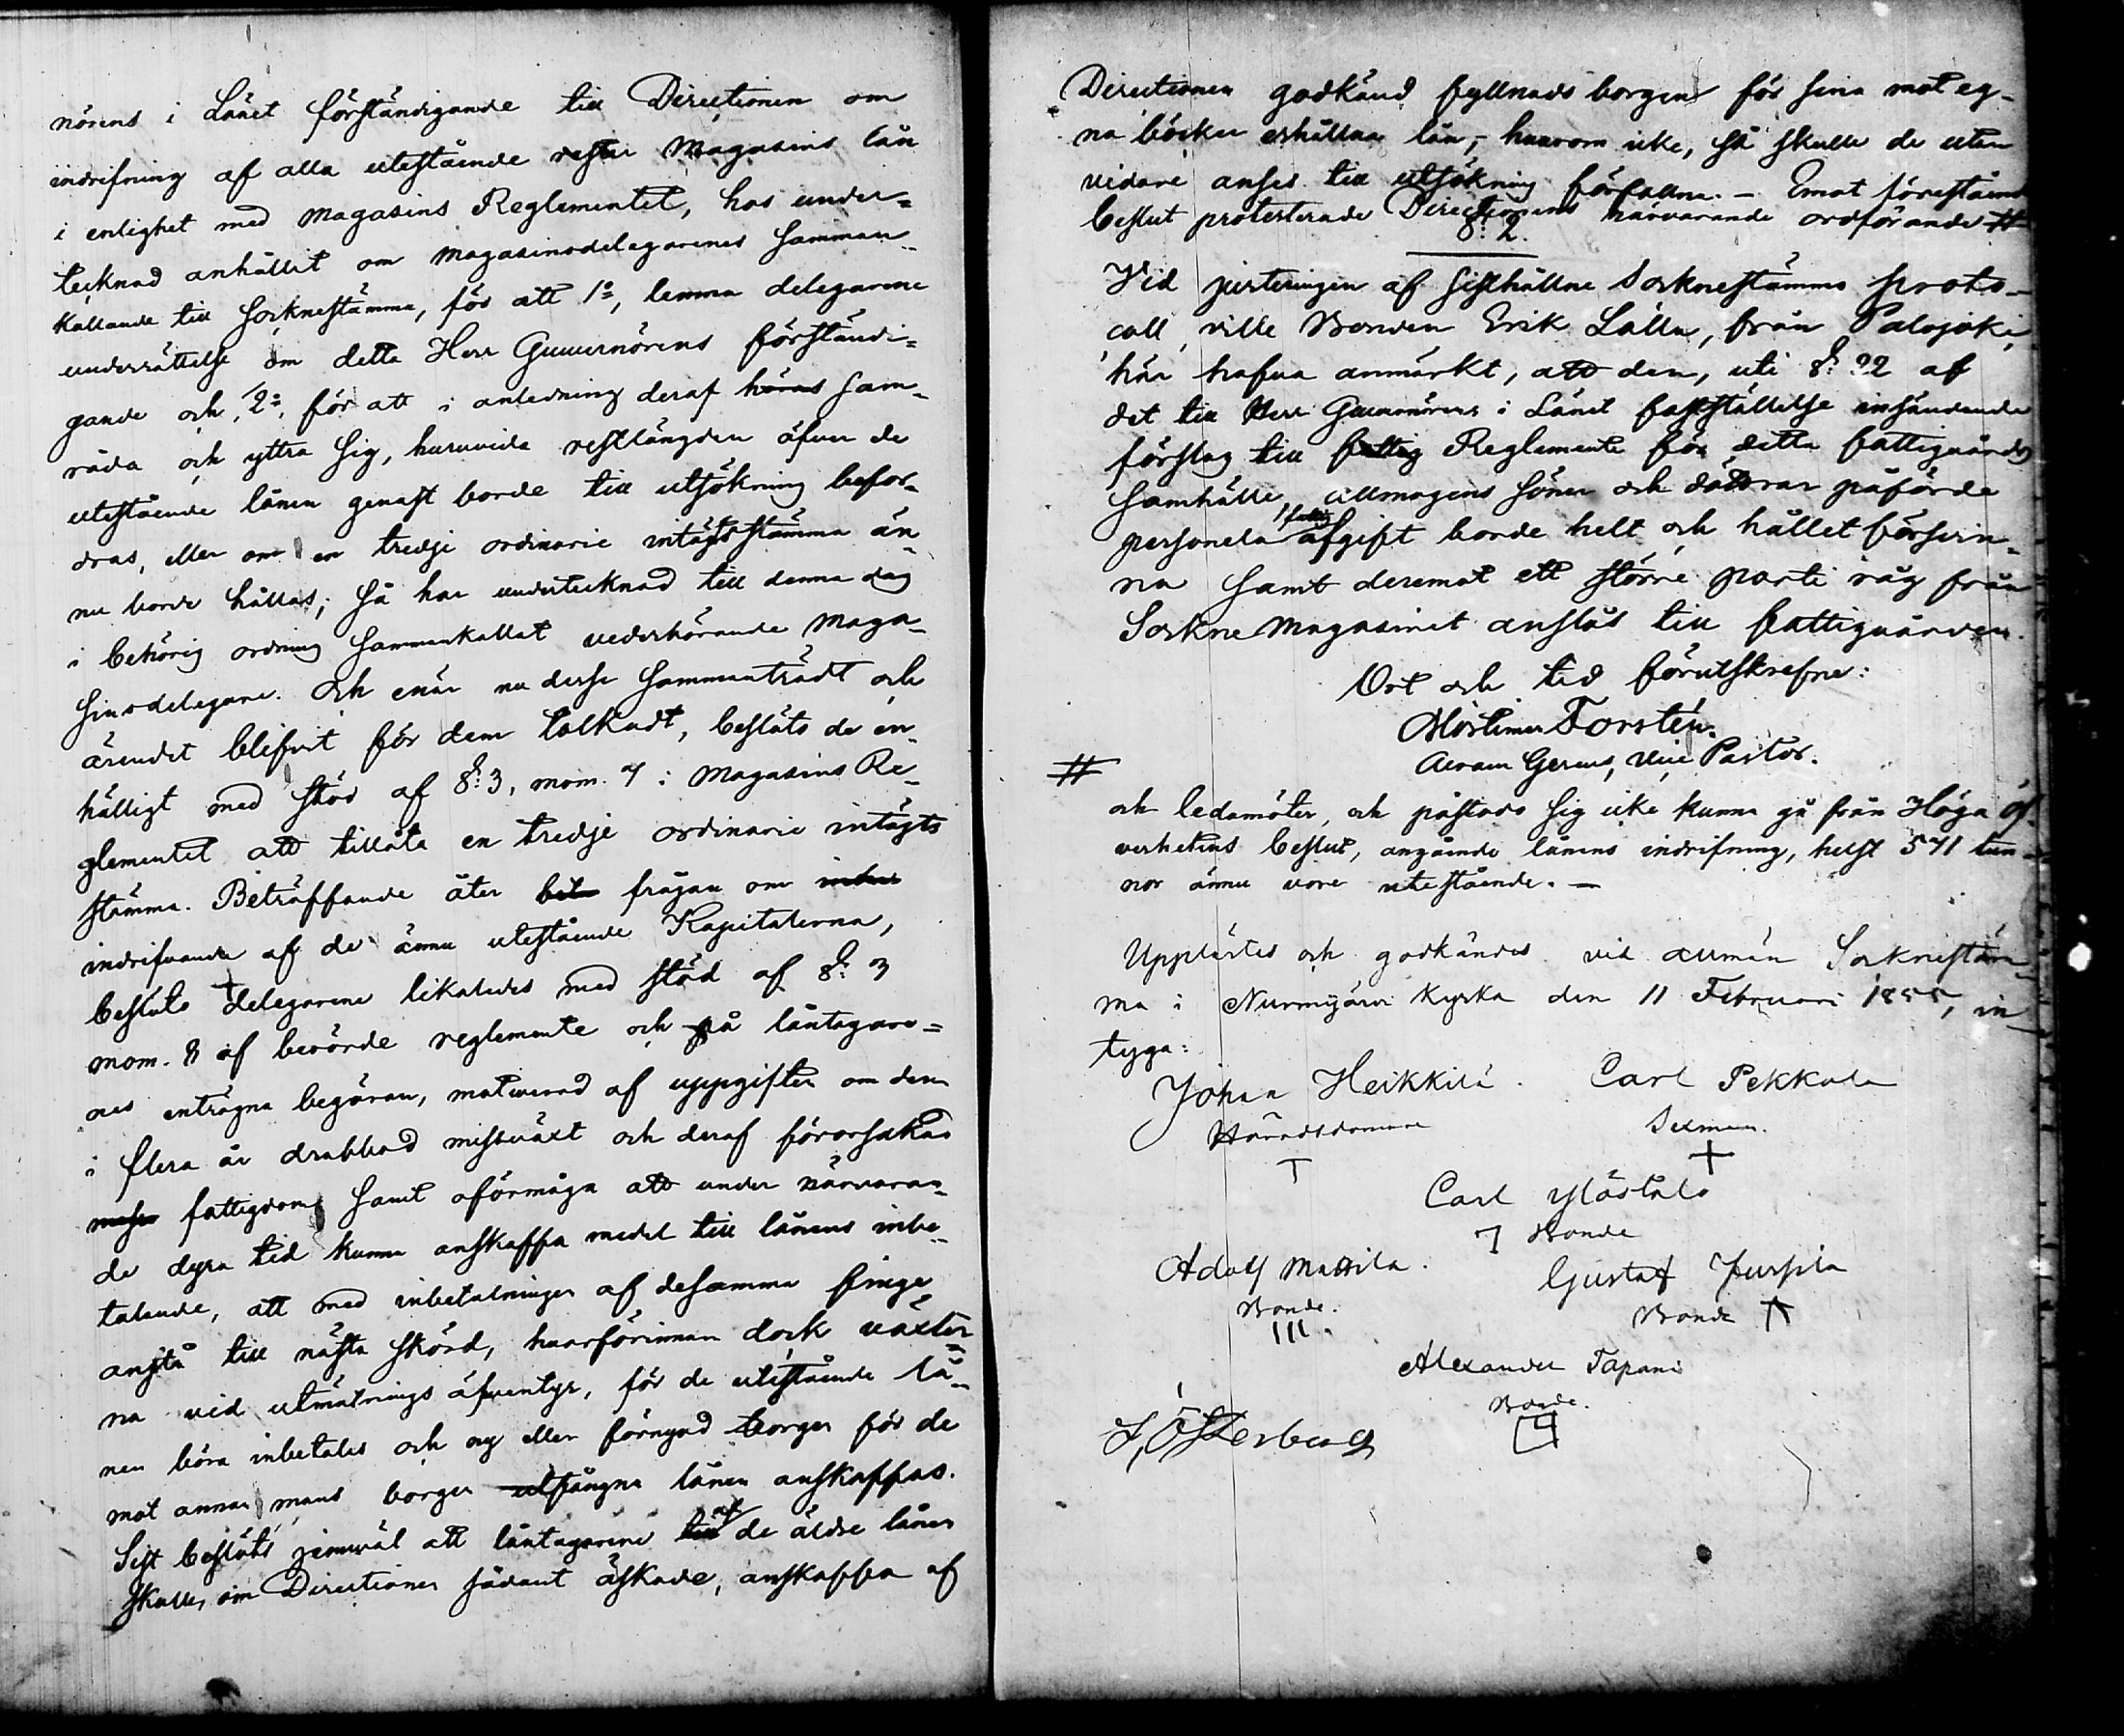 nörens i Länet förständigande till Directionen om
indrifning af alla utestående rester Magasins lån
i enlighet med Magasins Reglementet, has under-
tecknad anhållit om Magasinsdelegarenes samman-
kallande till Sockenstämma, för att 1:o, lemna delegarene
underrättelse om detta Herr Guvernörens förständi-
gande och, 2:o, för att i anledning deraf höras sam-
råda och yttra sig, huruvida restlängden öfver de
utestående lånen genast borde till utsökning befor-
dras, eller om en tredje ordinarie intägtsstämma än-
nu borde hållas; så har undertecknad till denna dag
i behörig ordning sammankallat vederhörande Maga-
sinsdelegare. Och enär nu desse sammanträdt och
ärendet blifvit för dem tolkadt, beslöto de en-
hälligt med stöd af §: 3, mom. 7 i Magasins Re-
glementet att tillåta en tredje ordinarie intägts
stämma. Beträffande åter frågan om
indrifvande af de ännu utestående Kapitalerna,
beslöto delegarene likaledes med stöd af §: 3
mom. 8 af berörde reglemente och på låntagare-
nes enträgna begäran, motiverad af uppgiften om den
i flera år drabbad missväxt och deraf förorsakad
fattigdom samt oförmåga att under närvaran-
de dyra tid kunna anskaffa medel till lånens inbe-
talande, att med inbetalningen af desamma finge
anstå till nästa skörd, hvarförinnan dock växter-
na vid utmätnings äfventyr, för de utestående lå-
nen böra inbetalas och ny eller förnyad borgen för de
mot annan mans borgen utfångna lånen anskaffas.
Sist beslöts jemväl att låntagarene till af de äldre lånen
skulle, om Directionen sådant äskade, anskaffa af
Directionen godkänd fyllnads borgen för sina mot eg-
na böcker erhållna lån, hvarom icke, så skulle de utan
vidare anses till utsökning förfallna. - Emot förestående
beslut protesterade Directionens närvarande ordförande #
§: 2.
Vid justeringen af sisthållne Sockenstämmo proto-
coll, ville Bonden Erik Lålla, från Palojoki,
här hafva anmärkt, att den, uti §: 22 af
det till Herr Guvernörens i Länet fastställelse insändande
förslag till fattig Reglemente för detta fattigvårds
samhälle, allmogens söner och döttrar påförde
personela fattig afgift borde helt och hållet försvin-
na samt deremot ett större parti råg från
Sockne Magasinet anslås till fattigvården.
Ort och tid förutskrefne:
Mårtimer Forstén.
Avram Gerens, Vice Pastor.
#
och ledamöter, och påstods sig icke kunna gå från Höga Öf-
verhetens beslut, angående lånens indrifning, helst 571 tun-
nor ännu vore utestående. -
Upplästes och godkändes vid allmän Sockenstäm-
ma i Nurmijärvi Kyrka den 11 Februari 1855, in-
tyga:
Johan Heikkilä. Carl Pekkala
Häradsdomare Sexman.
Carl Ylöstalo
Bonde
Adolf Mattila. Gustaf Jussila
Bonde. Bonde
Alexander Tapani
Bonde.
Österberg